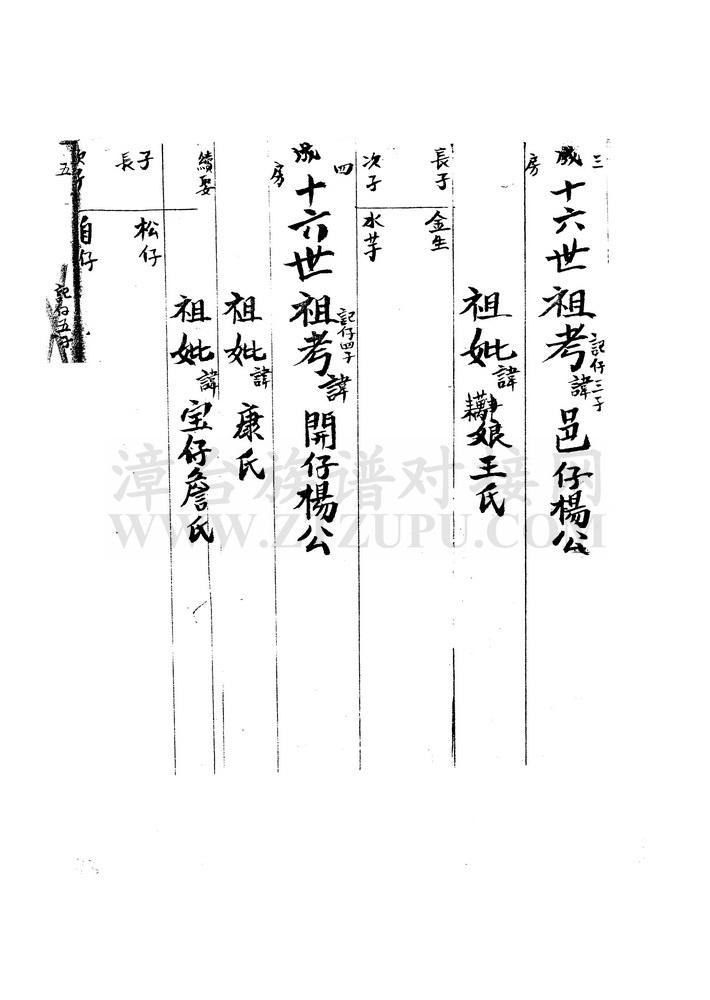 三房
十六世祖考諱邑仔楊公
記仔三子
祖妣諱娘王氏
長子 金生
次子 水芋
四房
十六世祖考諱開仔楊公
記仔四子
祖妣諱康氏
續娶
祖妣諱宝仔詹氏
長子 松仔
次子 自仔
五
記仔五子
漳台族谱对接网
WWW.ZTZUPU.COM